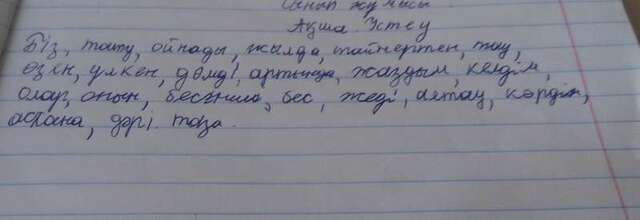 Сынып жұмысы
Ақша. Үстеу
Біз, тату, ойнады, жылда, таңертең, тау,
өзен, үлкен, дәмді, артында, жаздым, келдім,
олар, оның, бесінші, бес, жеді, ақтау, көрдім,
астана, дәрі. таза.